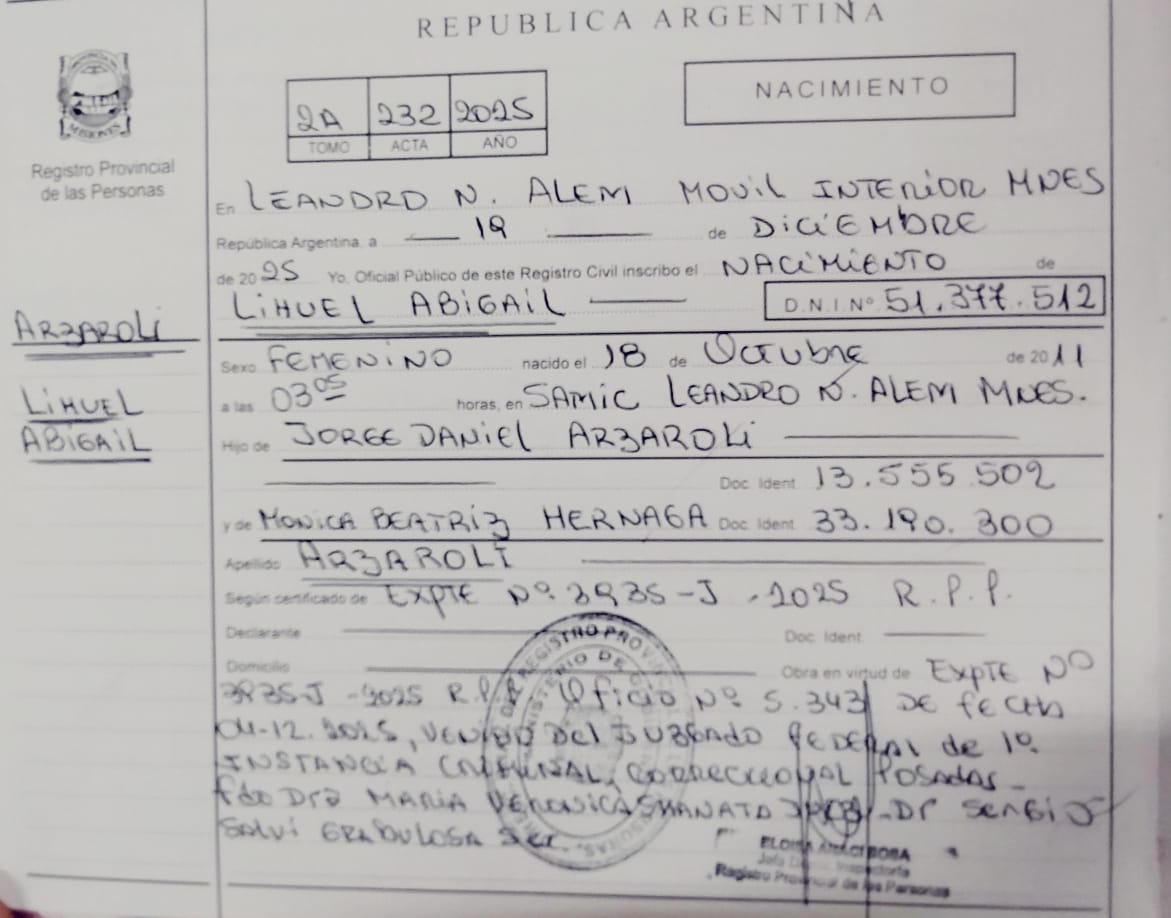 REPUBLICA ARGENTINA
MISIONES
Registro Provincial
de las Personas
2A 232 2025
TOMO ACTA AÑO
NACIMIENTO
En LEANDRO N. ALEM MOVIL INTERIOR MNES
República Argentina a 19 de DICIEMBRE
de 2025 Yo. Oficial Público de este Registro Civil inscribo el NACIMIENTO de
LIHUEL ABIGAIL D.N.I. Nº 51.377.512
ARZAROLI
LIHUEL
ABIGAIL
Sexo FEMENINO nacido el 18 de OCTUBRE de 2011
a las 03 05 horas, en SAMIC LEANDRO N. ALEM MNES.
Hijo de JORGE DANIEL ARZAROLI
Doc. Ident 13.555.502
y de MONICA BEATRIZ HERNAGA Doc. Ident 33.190.300
Apellido ARZAROLI
Según certificado de EXPTE Nº 3935-J -2025 R.P.P.
Declarante Doc. Ident
Domicilio Obra en virtud de EXPTE Nº
3935-J -2025 R.P.P. Oficio Nº 5.343 DE FECHA
04-12.2025, VENIDO DEL JUZGADO FEDERAL de 1º
INSTANCIA CRIMINAL, CORRECCIONAL Posadas
fdo Dra MARIA VERONICA Dr SERGIO
SALVI Sec.
REGISTRO PROVINCIAL
MINISTERIO DE
ELOISA
Registro Provincial de las Personas